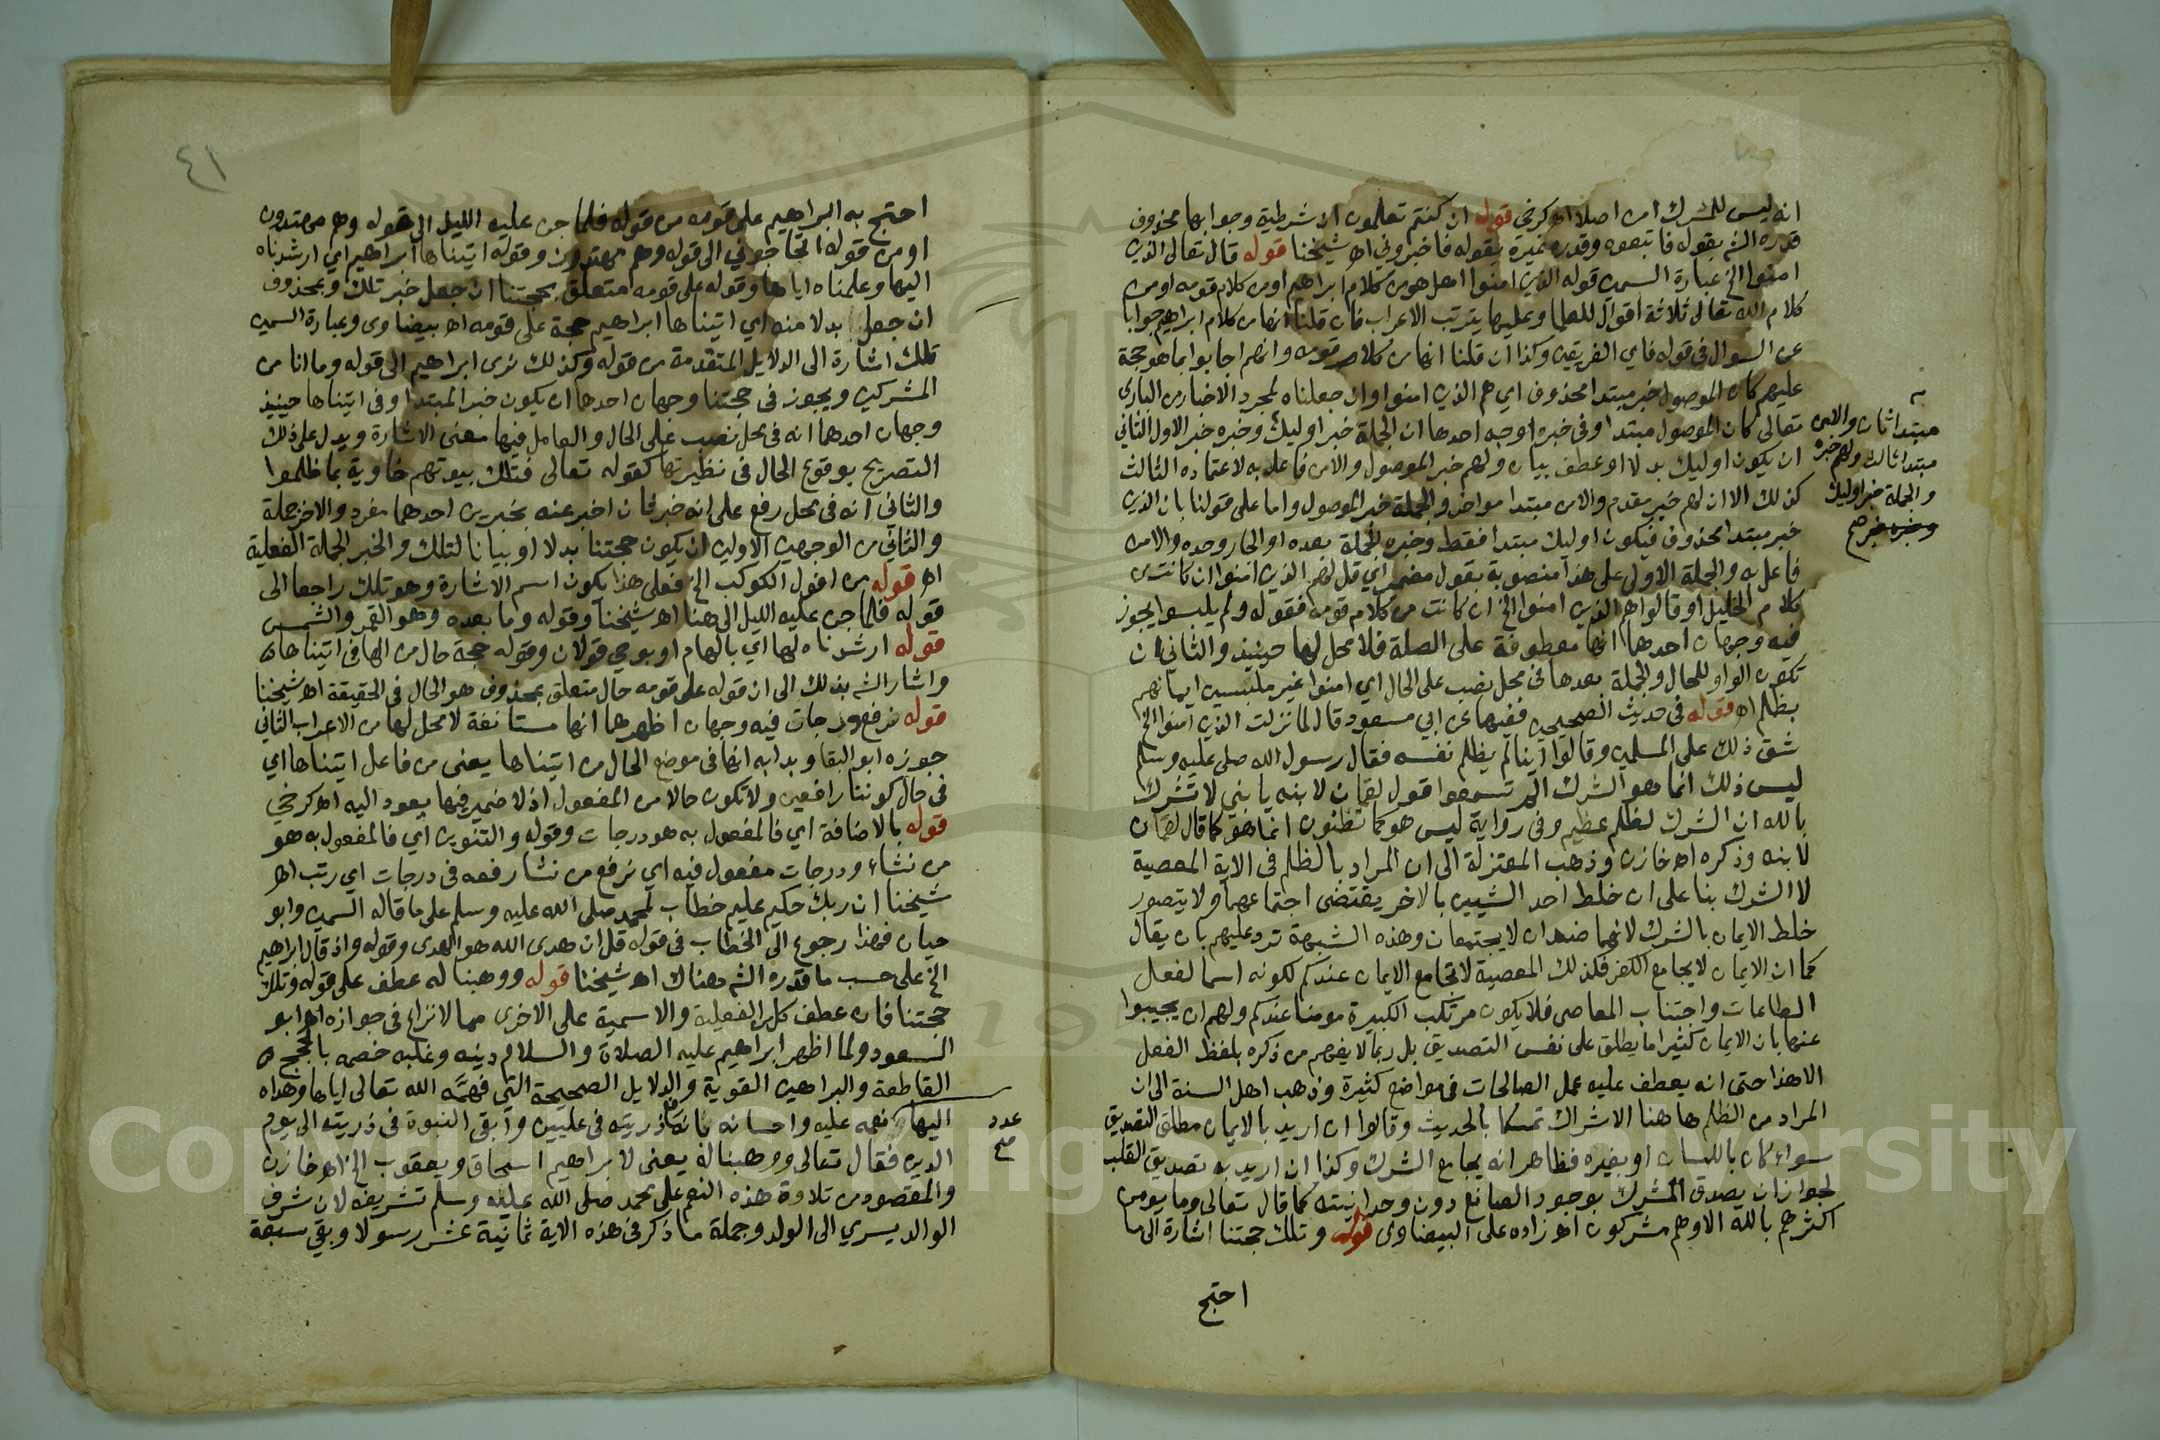 انه ليس للمشرك امن اصلا اه كرخي قوله ان كنتم تعلمون ان شرطية وجوابها محذوف
قدره الش بقوله فاتبعوه وقدره غيره بقوله فاخبروني اه شيخنا قوله قال تعالى الذين
امنوا الخ عبارة السمين قوله الذين امنوا هل هو من كلام ابراهيم او من كلام قومه او من
كلام الله تعالى ثلاثة اقوال للعلما وعليها يترتب الاعراب فان قلنا انها من كلام ابراهيم جوابا
عن السوال في قوله فاي الفريقين وكذا ان قلنا انها من كلام قومه وانهم اجابوا بما هو حجة
عليهم كان الموصول خبر مبتدا محذوف اي هم الذين امنوا وان جعلناه لمجرد الاخبار من الباري
تعالى كان الموصول مبتدا وفي خبره اوجه احدها ان الجملة خبر اوليك وخبره خبر الاول الثاني
ان يكون اوليك بدلا او عطف بيان ولهم خبر الموصول والامن فاعل به لاعتماده الثالث
كذلك الا ان لهم خبر مقدم والامن مبتدا مواخر والجملة خبر الموصول واما على قولنا بان الذين
خبر مبتدا محذوف فيكون اوليك مبتدا فقط وخبره الجملة بعده او الجار وحده والامن
فاعل به والجملة الاولى على هذا منصوبة بقول مضمر اي قل لهم الذين امنوا ان كانت من
كلام الخليل او قالوا هم الذين امنوا الخ ان كانت من كلام قومه فقوله ولم يلبسوا يجوز
فيه وجهان احدهما انها معطوفة على الصلة فلا محل لها حينيذ والثاني ان
تكون الواو للحال والجملة بعدها في محل نصب على الحال اي امنوا غير ملتبسين ايمانهم
بظلم اه قوله في حديث الصحيحين ففيهما عن ابي مسعود قال لما نزلت الذين امنوا الخ
شق ذلك على المسلمين وقالوا اينا لم يظلم نفسه فقال رسول الله صلى عليه وسلم
ليس ذلك انما هو الشرك الم تسمعوا قول لقمان لابنه يا بني لا تشرك
بالله ان الشرك لظلم عظيم وفي رواية ليس هو كما تظنون انما هو كما قال لقمان
لابنه وذكره اه خازن وذهب المعتزلة الى ان المراد بالظلم في الاية المعصية
لا الشرك بنا على ان خلط احد الشيين بالاخر يقتضي اجتماعهما ولا يتصور
خلط الايمان بالشرك لانهما ضدان لا يجتمعان وهذه الشبهة ترد عليهم بان يقال
كما ان الايمان لا يجامع الكفر فكذلك المعصية لا تجامع الايمان عندكم لكونه اسما لفعل
الطاعات واجتناب المعاصي فلا يكون مرتكب الكبيرة مومنا عندكم ولهم ان يجيبوا
عنها بان الايمان كثيرا ما يطلق على نفس التصديق بل ربما لا يفهم من ذكره بلفظ الفعل
الا هذا حتى انه يعطف عليه عمل الصالحات في مواضع كثيرة وذهب اهل السنة الى ان
المراد من الظلم هاهنا الاشراك تمسكا بالحديث وقالوا ان اريد بالايمان مطلق التصديق
سواء كان باللسان او بغيره فظاهر انه يجامع الشرك وكذا ان اريد به تصديق القلب
لجواز ان يصدق المشرك بوجود الصانع دون وحدانيته كما قال تعالى وما يومن
اكثرهم بالله الا وهم مشركون اه زاده على البيضاوي قوله وتلك حجتنا اشارة الى ما
احتج
مبتدا ثان والامن
مبتدا ثالث ولهم خبره
والجملة خبر اوليك
صح
٤١
احتج به ابراهيم على قومه من قوله فلما جن عليه الليل الى قوله وهم مهتدون
او من قوله اتحاجوني الى قوله وهم مهتدون وقوله اتيناها ابراهيم اي ارشدناه
اليها وعلمناه اياها وقوله على قومه متعلق بحجتنا ان جعل خبر تلك وبمحذوف
ان جعل بدلا منه اي اتيناها ابراهيم حجة على قومه اه بيضاوي وعبارة السمين
تلك اشارة الى الدلايل المتقدمة من قوله وكذلك نرى ابراهيم الى قوله وما انا من
المشركين ويجوز في حجتنا وجهان احدهما ان يكون خبر المبتدا وفي اتيناها حينيذ
وجهان احدهما انه في محل نصب على الحال والعامل فيها معنى الاشارة ويدل على ذلك
التصريح بوقوع الحال في نظيرتها كقوله تعالى فتلك بيوتهم خاوية بما ظلموا
والثاني انه في محل رفع على انه خبر ثان اخبر عنه بخبرين احدهما مفرد والاخر جملة
والثاني من الوجهين الاولين ان يكون حجتنا بدلا او بيانا لتلك والخبر الجملة الفعلية
اه قوله من افول الكوكب الخ فعلى هذا يكون اسم الاشارة وهو تلك راجعا الى
قوله فلما جن عليه الليل الى هنا اه شيخنا وقوله وما بعده وهو القمر والشمس
قوله ارشدناه لها اي بالهام او بوحي قولان وقوله حجة حال من الها في اتيناها
واشار الش بذلك الى ان قوله على قومه حال متعلق بمحذوف هو الحال في الحقيقة اه شيخنا
قوله نرفع درجات فيه وجهان اظهرهما انها مستانفة لا محل لها من الاعراب الثاني
جوزه ابو البقا وبدا به انها في موضع الحال من اتيناها يعنى من فاعل اتيناها اي
في حال كوننا رافعين ولا تكون حالا من المفعول اذ لا ضمير فيها يعود اليه اه كرخي
قوله بالاضافة اي فالمفعول به هو درجات وقوله والتنوين اي فالمفعول به هو
من نشاء ودرجات مفعول فيه اي نرفع من نشا رفعه في درجات اي رتب اه
شيخنا ان ربك حكيم عليم خطاب لمحمد صلى الله عليه وسلم على ما قاله السمين وابو
حيان فهذا رجوع الى الخطاب في قوله قل ان هدى الله هو الهدى وقوله واذ قال ابراهيم
الخ على حسب ما قدره الش هناك اه شيخنا قوله ووهبنا له عطف على قوله وتلك
حجتنا فان عطف كل من الفعلية والاسمية على الاخرى مما لا نزاع في جوازه اه ابو
السعود ولما اظهر ابراهيم عليه الصلاة والسلام دينه وغلبه خصمه بالحجج
القاطعة والبراهين القوية والدلايل الصحيحة التي فهمه الله تعالى اياها وهداه
اليها نعمه عليه واحسانه بان ذريته في عليين وابقى النبوة في ذريته الى يوم
الدين فقال تعالى ووهبنا له يعنى لابراهيم اسحاق ويعقوب الخ اه خازن
والمقصود من تلاوة هذه النعم على محمد صلى الله عليه وسلم تشريفه لان شرف
الوالد يسري الى الولد وجملة ما ذكر في هذه الاية ثمانية عشر رسولا وبقي سبعة
عدد
صح